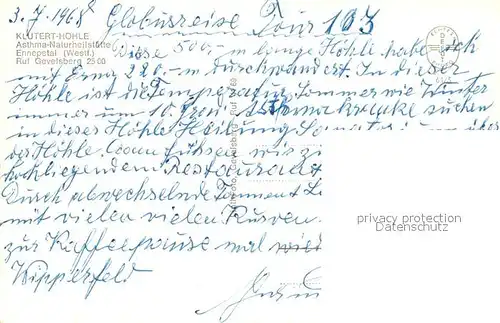 3.7.1968 Globusreise Tour 103
KLUTERT-HÖHLE
Asthma-Naturheilstätte
Ennepetal (Westf.)
Ruf Gevelsberg 26 00
Diese 500,-m lange Höhle habe ich
mit Erna 220,-m durchwandert. In dieser
Höhle ist die Temperatur Sommer wie Winter
immer um 10 Grad. Asthmakranke suchen
in dieser Höhle Heilung. über
der Höhle. Dann fuhren wir zu
hochliegendem Restaurant
Durch abwechselnde
mit vielen vielen Kurven
zur Kaffeepause mal wieder
Wipperfeld
Gevelsberg, Ruf
privacy protection
Datenschutz